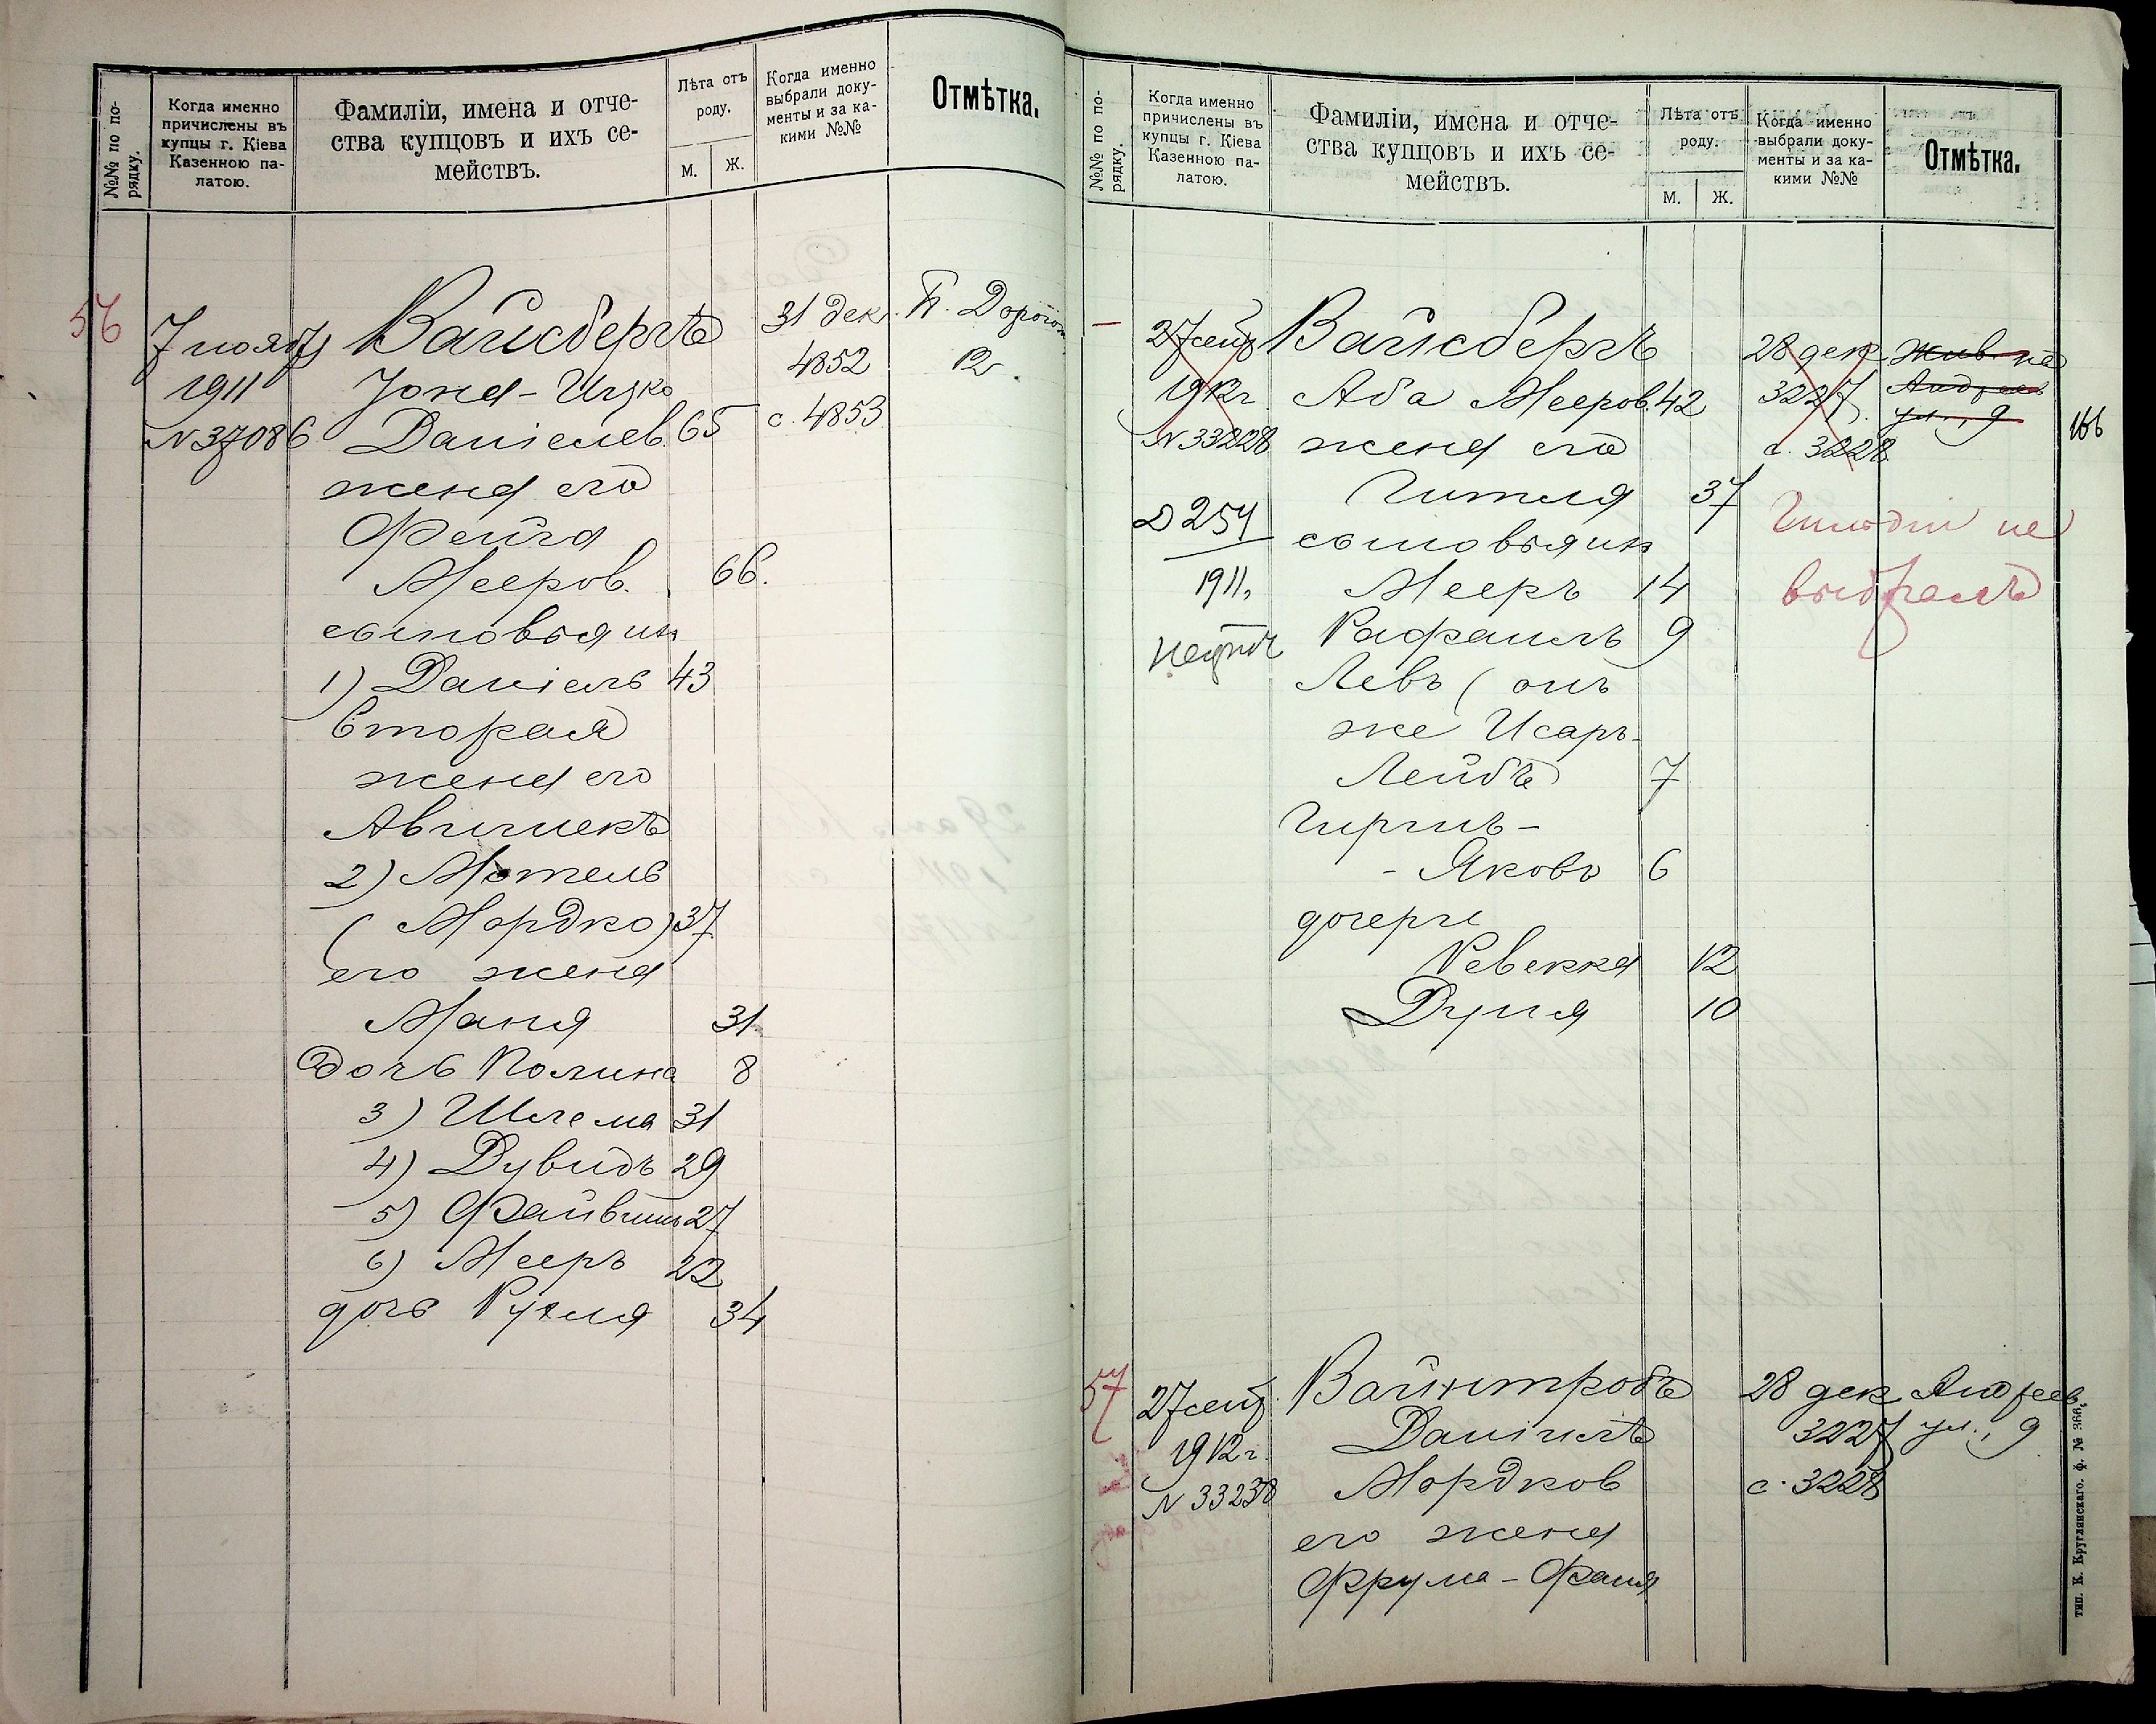 №№ по по-
рядку.
Когда именно
причислены въ
купцы г. Кіева
Казенною па-
латою.
Фамиліи, имена и отче-
ства купцовъ и ихъ се-
мействъ.
Лѣта отъ
роду.
М.
Ж.
Когда именно
выбрали доку-
менты и за ка-
кими №№
Отмѣтка.
56
7 ноября
1911
N 37086
Вайсбергъ
Іона-Ицко
Даніелев. 65
жена его
Фейга
Мееров. 66.
сыновья ихъ
1) Даніель 43
вторая
жена его
2) Мотель
(Мордко) 37
его жена
Маня 31
дочь Полина 8
3) Шлема 31
4) Дувидъ 29
5) Файвишъ 27
6) Мееръ 22
дочь Рухля 34
31 дек.
4852
с. 4853
Б. Дорогож
12
№№ по по-
рядку.
Когда именно
причислены въ
купцы г. Кіева
Казенною па-
латою.
Фамиліи, имена и отче-
ства купцовъ и ихъ се-
мействъ.
Лѣта отъ
роду.
М.
Ж.
Когда именно
выбрали доку-
менты и за ка-
кими №№
Отмѣтка.
–
27 сент
1912 г.
N 33228
Д 254
1911.
Вайсбергъ
Аба Мееров. 42
жена его
Гитля 37
сыновья ихъ
Мееръ 14
Рафаилъ 9
Левъ (онъ
же Исаръ-
Лейбъ 7
Гиршъ-
- Яковъ 6
дочери
Ревекка 12
Дуня 10
28 дек.
3227
с. 3228
Жив. на
Андреев
ул., 9
не
выбралъ
166
57
27 сент.
1912 г.
N 33238
Вайнтробъ
Даніилъ
Мордков
его жена
Фрума-Фаня
28 дек
3227
с. 3228
Андреев.
ул., 9
тип. К. Круглянскаго. ф. № 366.